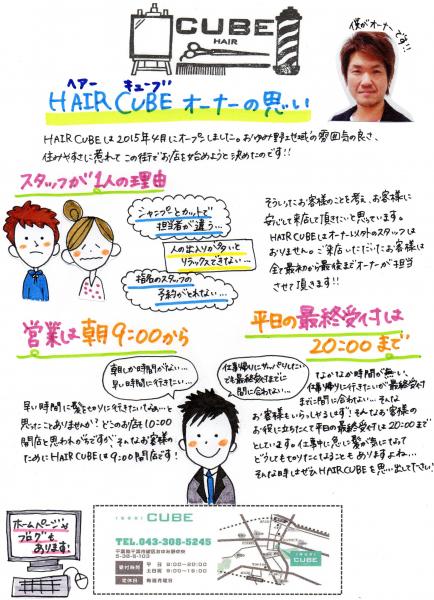 CUBE
HAIR
僕がオーナーです!!
ヘアー キューブ
HAIR CUBE オーナーの思い
HAIR CUBEは2015年4月にオープンしました。おゆみ野エ地域の雰囲気の良さ、
住みやすさに惹れてこの街でお店を始めようと決めたのです!!
スタッフが1人の理由
シャンプーとカットで
担当者が違う…
人の出入りが多いと
リラックスできない…
指名のスタッフの
予約がとれない…
そういったお客様のことを考え、お客様に
安心して来店して頂きたいと思っています。
HAIR CUBEはオーナー以外のスタッフは
おりません。ご来店いただいたお客様は
全て最初から最後までオーナーが担当
させて頂きます!!
営業は朝9:00から
朝しか時間がない…
早い時間に行きたい…
早い時間に髪を切りに行きたいなぁ…と
思ったことありませんか?どこのお店も10:00
開店と思われがちですが、そんなお客様の
ためにHAIR CUBEは9:00開店です!
仕事帰りにサッパリしたい
でも最終受付までに
間に合わない…
平日の最終受付は
20:00まで
なかなか時間が無い、
仕事帰りに行きたいが最終受付
までに間に合わない…そんな
お客様もいらっしゃるはず!そんなお客様の
お役に立ちたくて平日の最終受付は20:00まで
としています。仕事中に急に髪が気になって
どうしてもセットしたくなることもありますよね…
そんな時はぜひHAIR CUBEを思い出して下さい!
ホームページや
ブログも
あります!
CUBE
TEL.043-308-5245
千葉県千葉市緑区おゆみ野中央
受付時間 平日 9:00〜20:00
土日祝 9:00〜19:00
定休日 毎週月曜日
CUBE